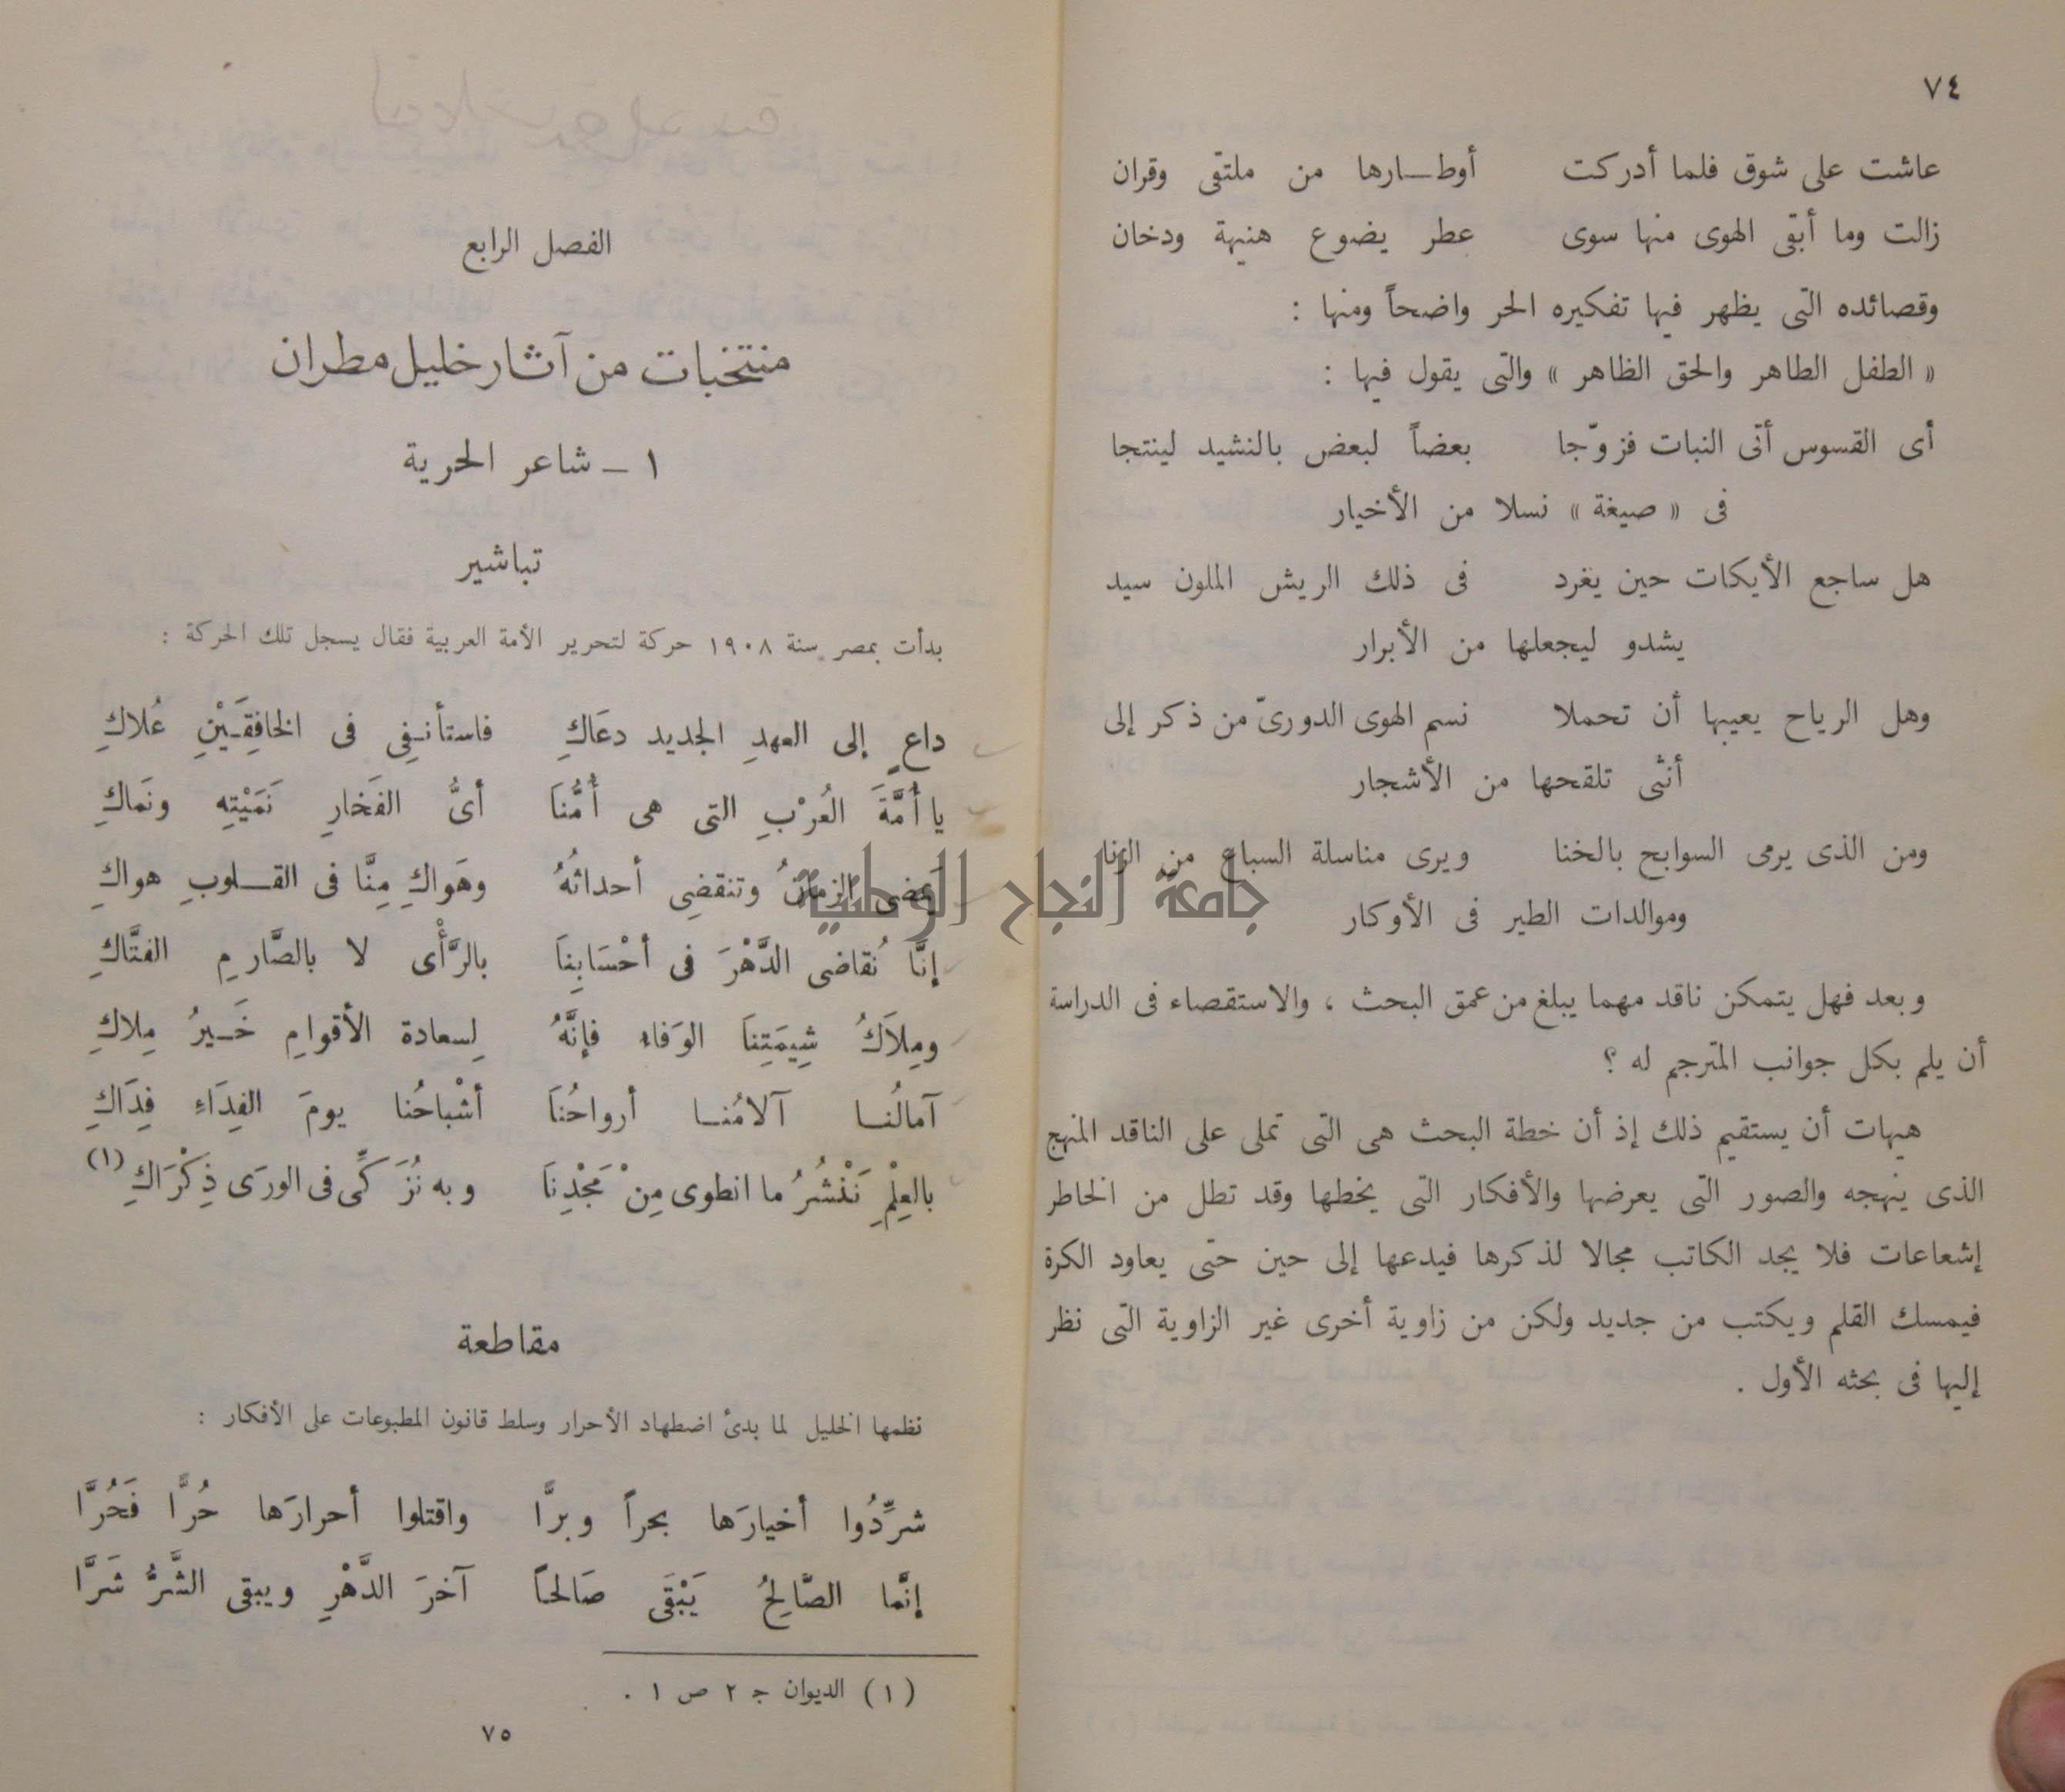 ٧٤
عاشت على شوق فلما أدركت أوطـارها من ملتقى وقران
زالت وما أبقى الهوى منها سوى عطر يضوع هنيهة ودخان
وقصائده التى يظهر فيها تفكيره الحر واضحاً ومنها :
« الطفل الطاهر والحق الظاهر » والتى يقول فيها :
أى القسوس أتى النبات فزوّجا بعضاً لبعض بالنشيد لينتجا
فى « صيغة » نسلا من الأخيار
هل ساجع الأيكات حين يغرد فى ذلك الريش الملون سيد
يشدو ليجعلها من الأبرار
وهل الرياح يعيبها أن تحملا نسم الهوى الدورىّ من ذكر إلى
أنثى تلقحها من الأشجار
ومن الذى يرمى السوابح بالخنا ويرى مناسلة السباع من الزنا
وموالدات الطير فى الأوكار
وبعد فهل يتمكن ناقد مهما يبلغ من عمق البحث ، والاستقصاء فى الدراسة
أن يلم بكل جوانب المترجم له ؟
هيهات أن يستقيم ذلك إذ أن خطة البحث هى التى تملى على الناقد المنهج
الذى ينهجه والصور التى يعرضها والأفكار التى يخطها وقد تطل من الخاطر
إشعاعات فلا يجد الكاتب مجالا لذكرها فيدعها إلى حين حتى يعاود الكرة
فيمسك القلم ويكتب من جديد ولكن من زاوية أخرى غير الزاوية التى نظر
إليها فى بحثه الأول .
جامعة النجاح الوطنية
الفصل الرابع
منتخبات من آثار خليل مطران
١ – شاعر الحرية
تباشير
بدأت بمصر سنة ١٩٠٨ حركة لتحرير الأمة العربية فقال يسجل تلك الحركة :
داعٍ إلى العهدِ الجديد دعَاكِ فاستأنـفِى فى الخافِقَـيْنِ عُلاكِ
يا أُمَّةَ العُرْبِ التى هى أُمُّنَا أىُّ الفَخارِ نَمَيْتِهِ ونَماكِ
يَمضى الزمانُ وتنقضِى أحداثُهُ وهَواكِ مِنَّا فى القـلوبِ هواكِ
إنَّا نُقاضى الدَّهْرَ فى أحْسَابِنَا بالرَّأْى لا بالصَّارِمِ الفتَّاكِ
ومِلاَكُ شِيمَتِنَا الوَفاء فإنَّهُ لِسعادة الأقوامِ خَـيرُ مِلاكِ
آمالُنـا آلامُنـا أرواحُنَا أشْباحُنا يومَ الفِدَاءِ فِدَاكِ
بالعِلْمِ نَنْشُرُ ما انطوى مِنْ مَجْدِنَا وبه نُزَكِّى فى الورَى ذِكْرَاكِ (١)
مقاطعة
نظمها الخليل لما بدئ اضطهاد الأحرار وسلط قانون المطبوعات على الأفكار :
شرِّدُوا أخيارَها بحراً وبرَّا واقتلوا أحرارَها حُرًّا فَحُرَّا
إنَّما الصَّالِحُ يَبْقَى صَالحاً آخرَ الدَّهْرِ ويبقى الشَّرُّ شَرَّا
(١) الديوان ج ٢ ص ١ .
٧٥